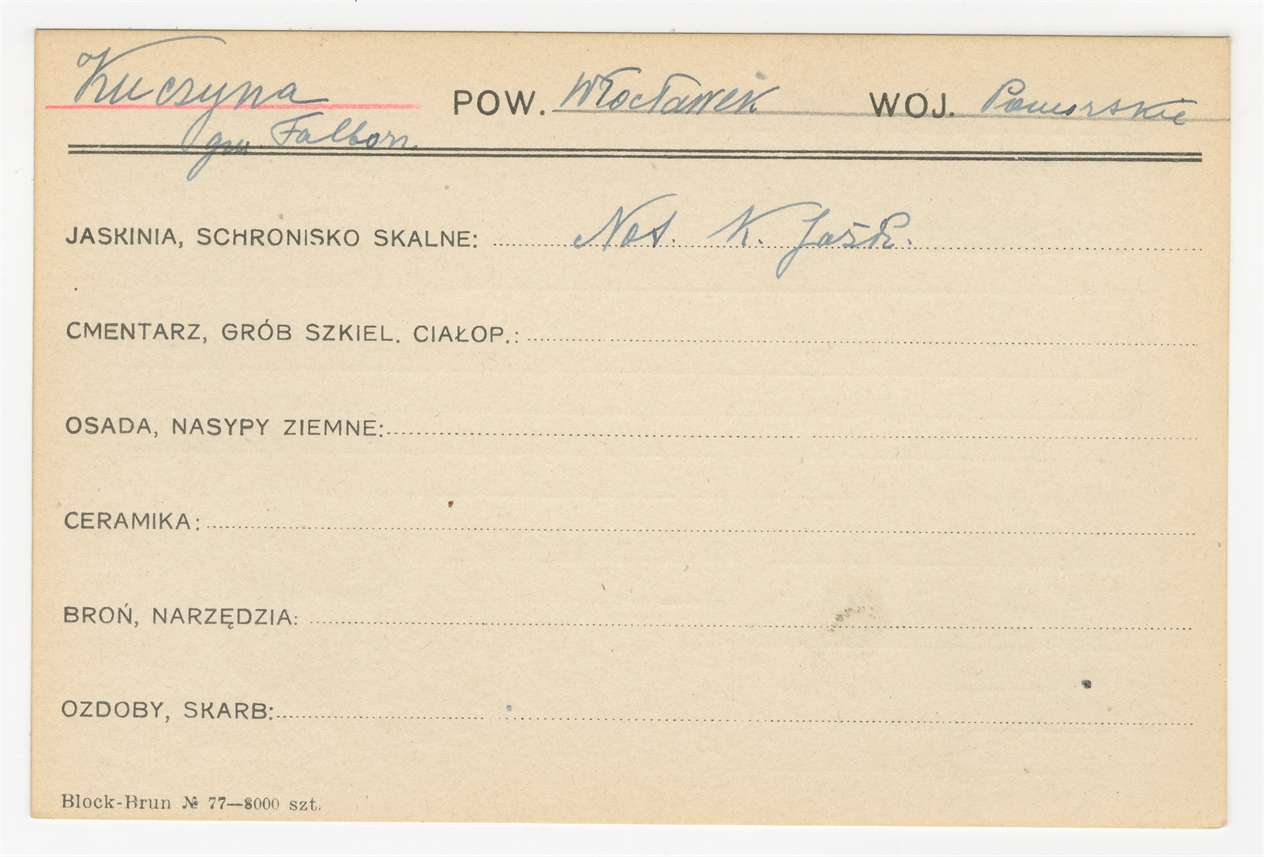 Kuczyna POW. Włocławek WOJ. Pomorskie
gm. Falborz
JASKINIA, SCHRONISKO SKALNE: Not. K. Jażdż.
CMENTARZ, GRÓB SZKIEL. CIAŁOP.:
OSADA, NASYPY ZIEMNE:
CERAMIKA:
BROŃ, NARZĘDZIA:
OZDOBY, SKARB:
Block-Brun № 77—8000 szt.